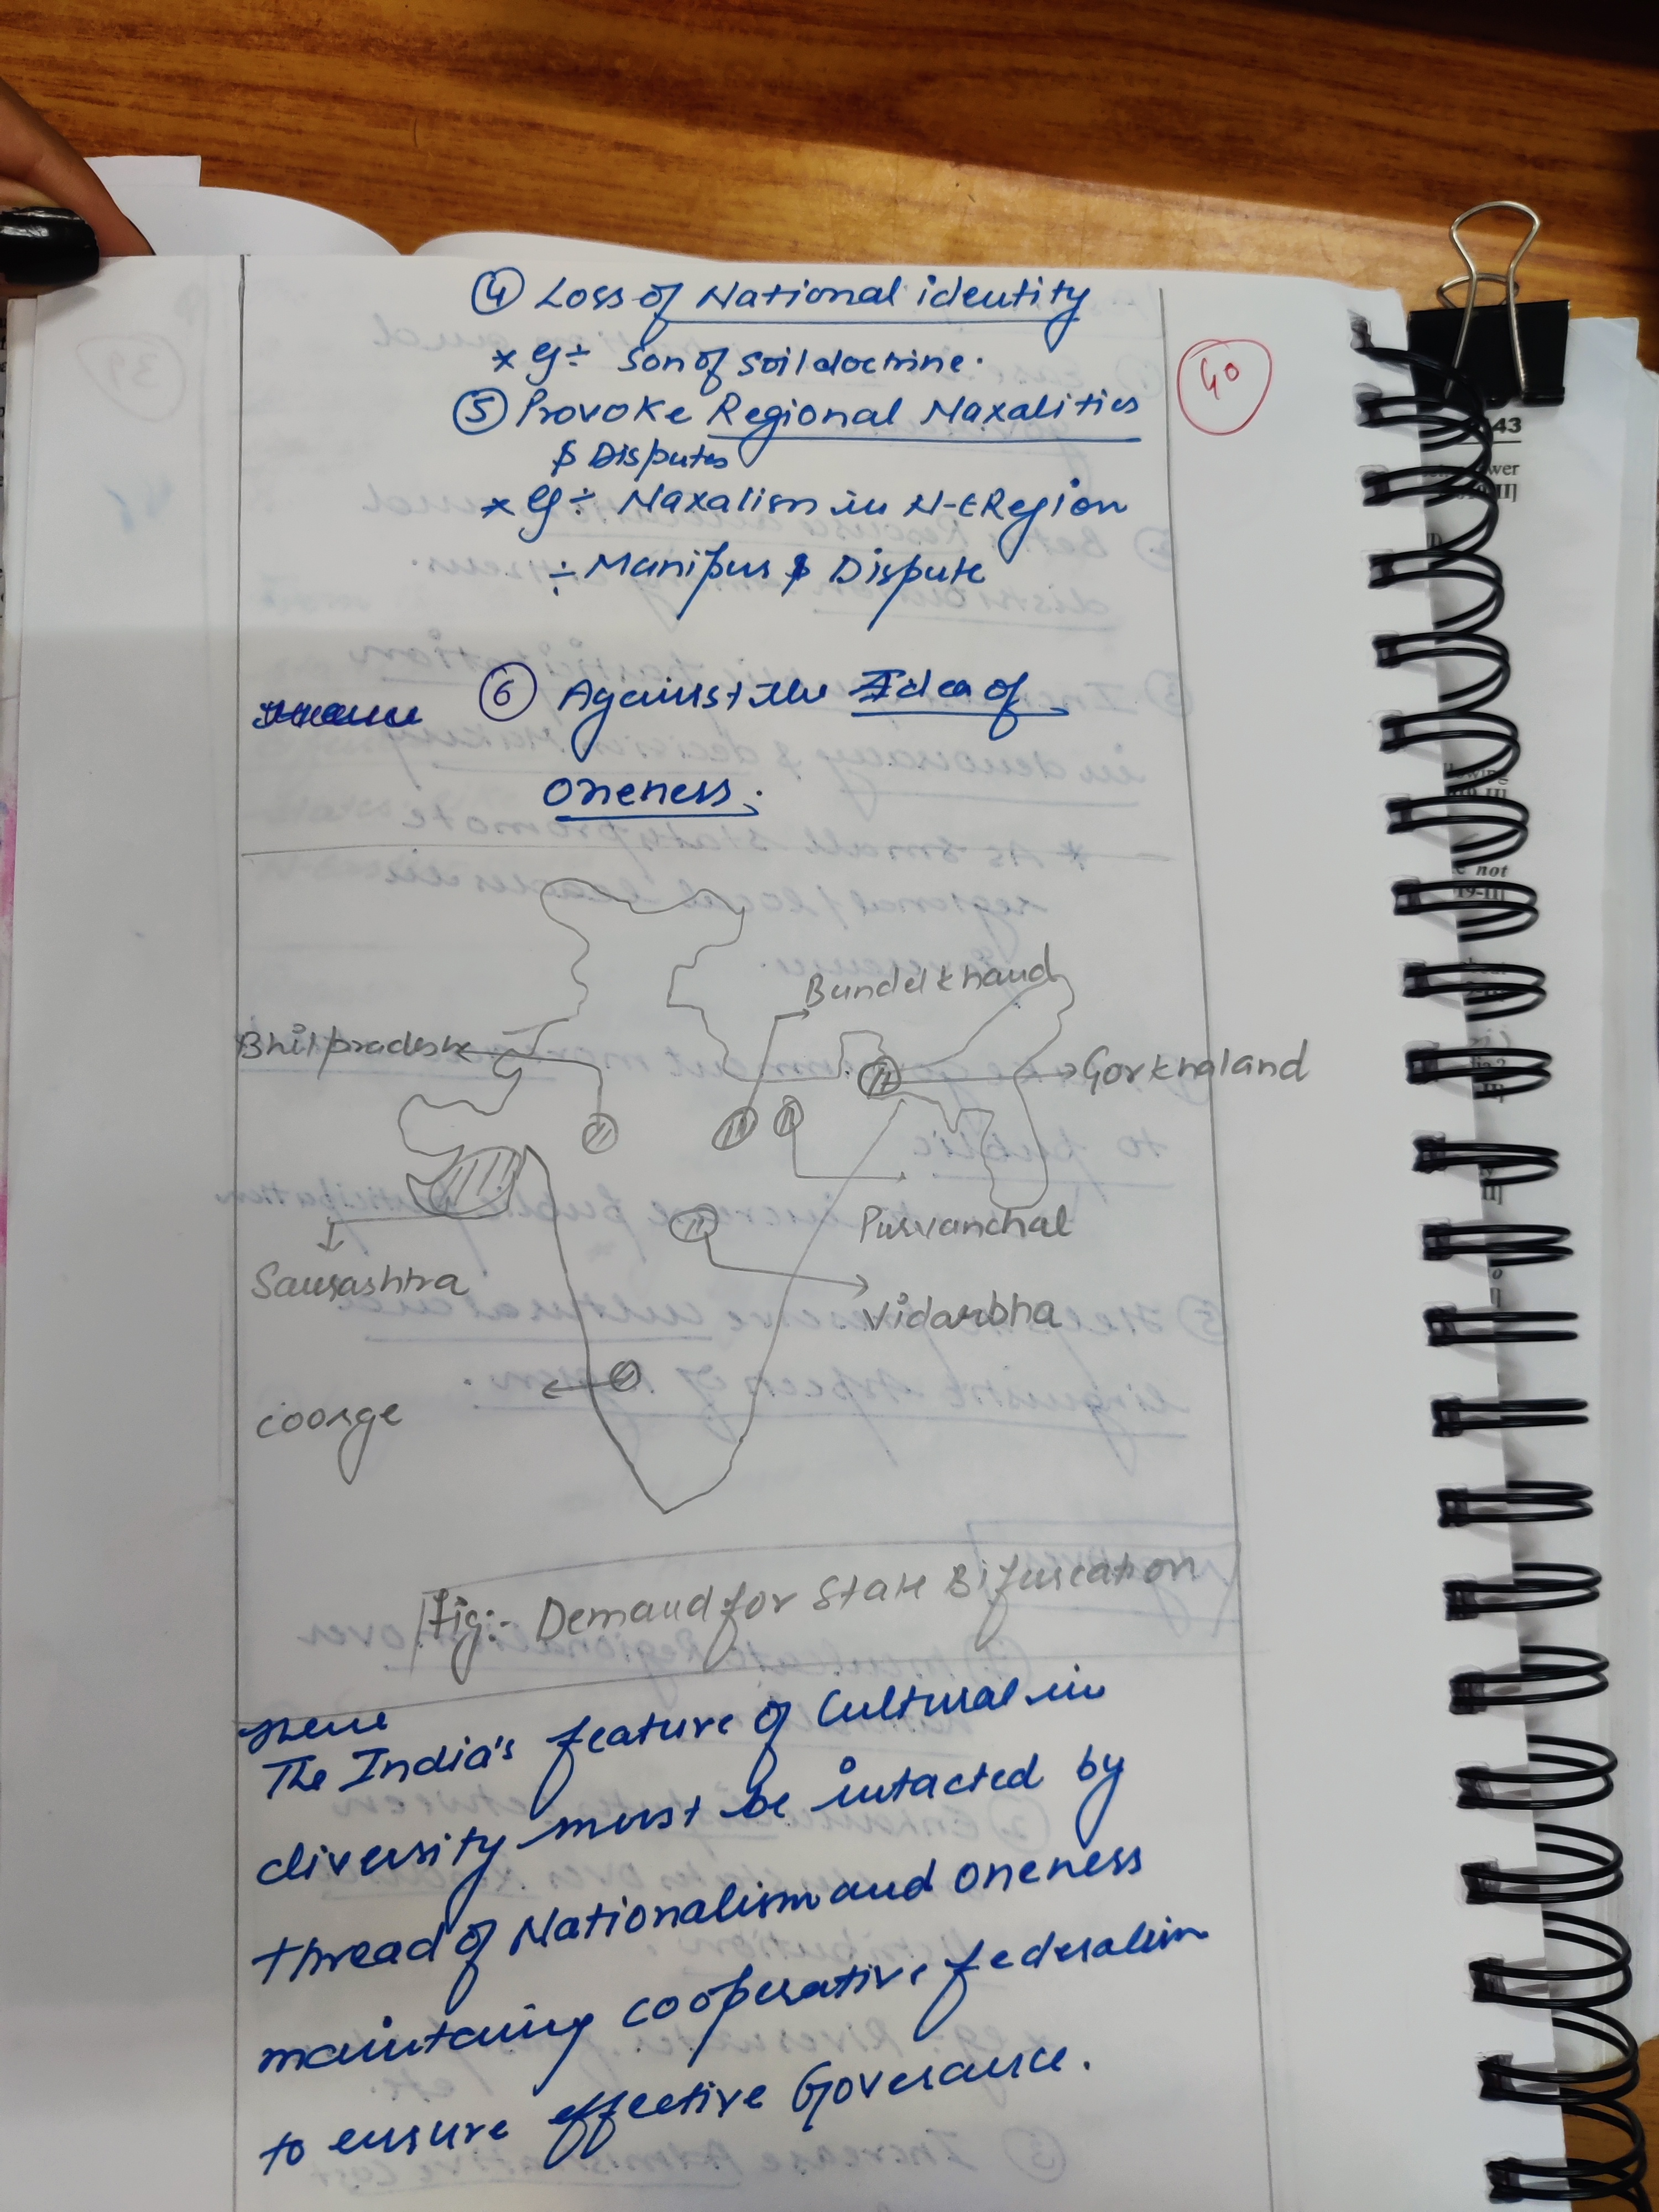 ④ Loss of National identity
* eg ÷ Son of Soil doctrine.
40
⑤ Provoke Regional Naxalities
& Disputes
* eg ÷ Naxalism in N-E Region
÷ Manipur & Dispute
⑥ Against the Idea of
Oneness.
Bundelkhand
Bhilpradesh
Gorkhaland
Purvanchal
Saurashtra
Vidarbha
Coorge
Fig:- Demand for State Bifurcation
The India's feature of Cultural in
diversity must be intacted by
thread of Nationalism and oneness
maintaing cooperative federalism
to ensure effective Goverance.
43
wer
II]
not
19-II]